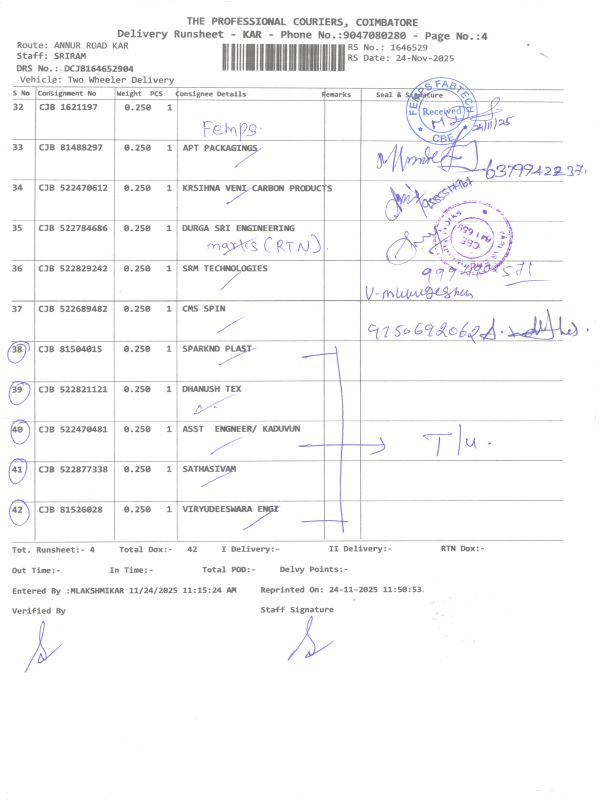 THE PROFESSIONAL COURIERS, COIMBATORE
Delivery Runsheet - KAR - Phone No.:9047080280 - Page No.:4
Route: ANNUR ROAD KAR RS No.: 1646529
Staff: SRIRAM RS Date: 24-Nov-2025
DRS No.: DCJB164652904
Vehicle: Two Wheeler Delivery
S No Consignment No Weight PCS Consignee Details Remarks Seal & Signature
32 CJB 1621197 0.250 1
Femps.
FEMPS FABTECH Received CBE
24/11/25
33 CJB 81488297 0.250 1 APT PACKAGINGS
6379942237.
34 CJB 522470612 0.250 1 KRSIHNA VENI CARBON PRODUCTS
35 CJB 522784686 0.250 1 DURGA SRI ENGINEERING
marks (RTN).
CBE
36 CJB 522829242 0.250 1 SRM TECHNOLOGIES
V-murugeshen
37 CJB 522689482 0.250 1 CMS SPIN
9750692062
38 CJB 81504015 0.250 1 SPARKND PLAST
39 CJB 522821121 0.250 1 DHANUSH TEX
40 CJB 522470481 0.250 1 ASST ENGNEER/ KADUVUN
T/U.
41 CJB 522877338 0.250 1 SATHASIVAM
42 CJB 81526028 0.250 1 VIRYUDEESWARA ENGI
Tot. Runsheet:- 4 Total Dox:- 42 I Delivery:- II Delivery:- RTN Dox:-
Out Time:- In Time:- Total POD:- Delvy Points:-
Entered By :MLAKSHMIKAR 11/24/2025 11:15:24 AM Reprinted On: 24-11-2025 11:50:53.
Verified By Staff Signature